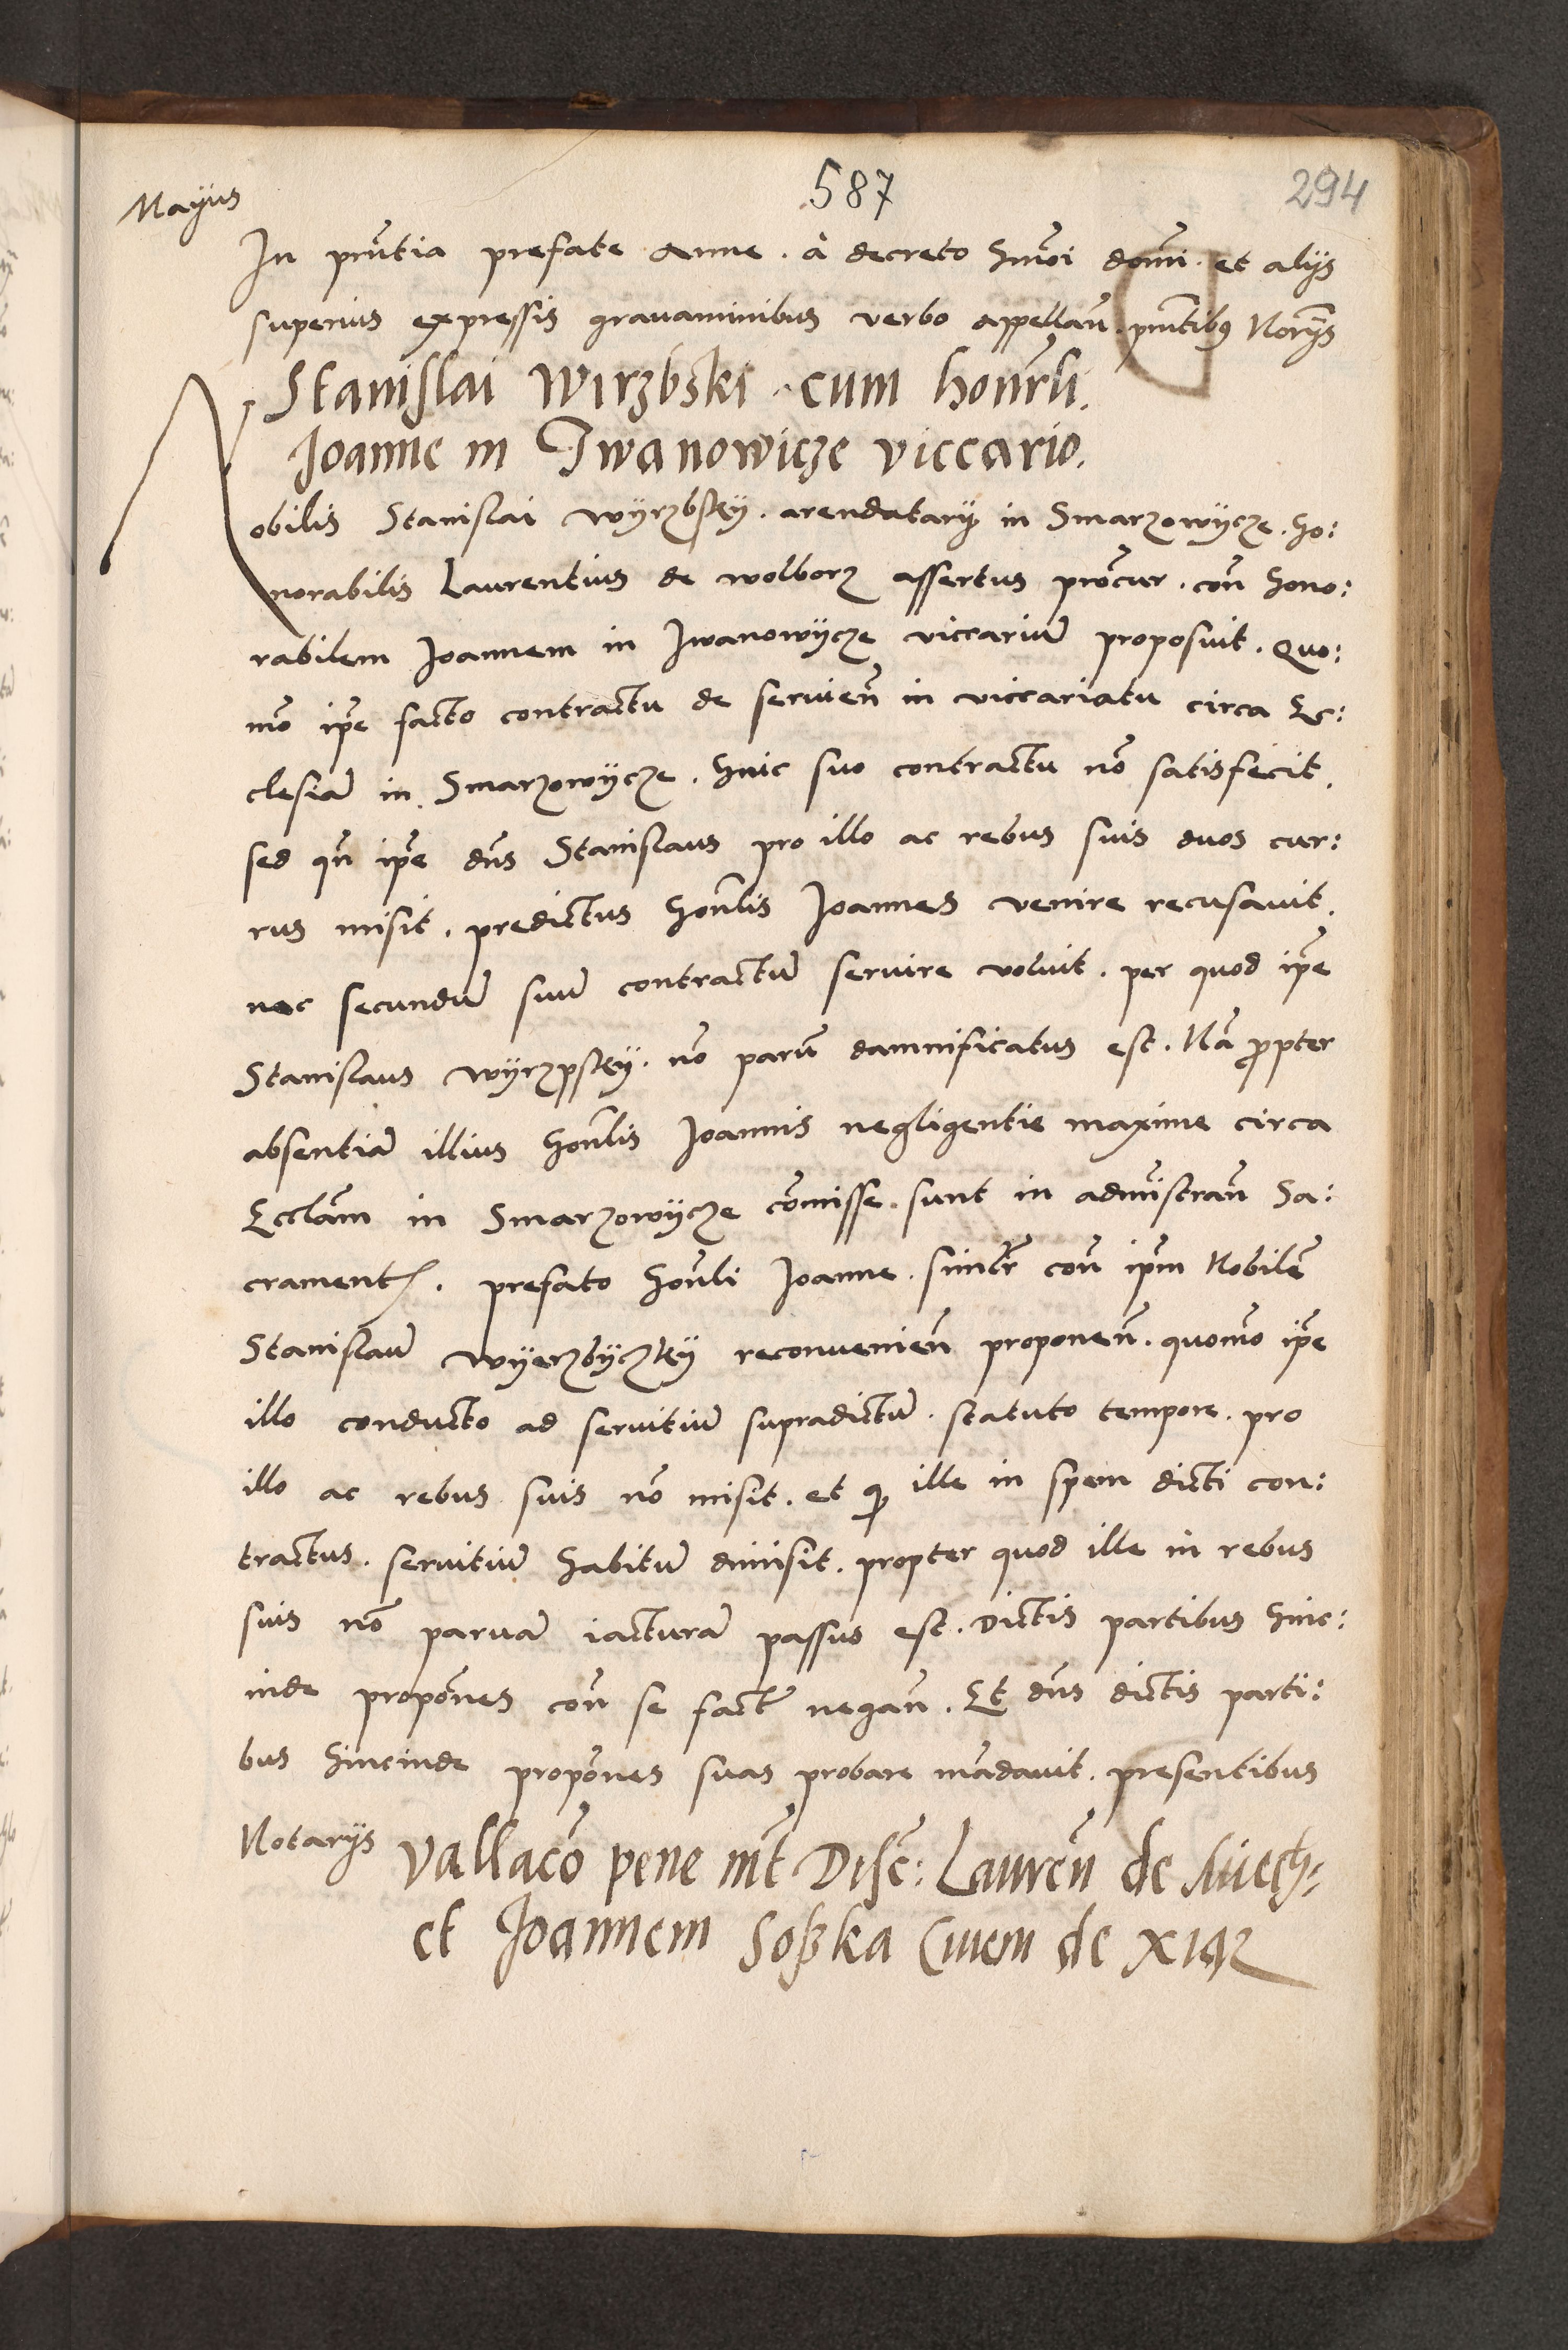 587
294
Mayus
In pñtia prefate Anne . à decreto hmõi dom̃i . et alijs
superius expressis gravaminibus verbo appellañ . pñtibus Norijs
Stanislai Wirzbski . cum honrli.
Joanne in Iwanowicze viccario.
Nobilis Stanislai Wyrzbsky . arendatarij in Smarzowycze . Ho:
norabilis Laurentius de Wolborz assertus procur . con̄ hono:
rabilem Joannem in Iwanowycze viccariū proposuit . Quo:
mõ ip̃e facto contractu de servieñ in viccariatu circa Ec:
clesiā in Smarzowycze . huic suo contractu nõ satisfecit .
sed qñ ip̃e dñs Stanislaus pro illo ac rebus suis duos cur:
rus misit . predictus honrlis Joannes venire recusavit .
nec secundū suū contractū servire voluit . per quod ip̃e
Stanislaus Wyrzpsky . nõ parū damnificatus est . Nā propter
absentiā illius honrlis Joannis negligentie maxime circa
Ecclām in Smarzowycze cōmisse . sunt in admīstrañ Sa:
crament . prefato honrli Joanne . simlr con̄ ip̃m Nobilē
Stanislaū Wyerzbyczky reconvenieñ proponeñ . quomõ ip̃e
illo conducto ad servitiū supradictū . statuto tempore . pro
illo ac rebus suis nõ misit . et q ille in spem dicti con:
tractus . servitiū habitū dimisit . propter quod ille in rebus
suis nõ parvā iacturā passus est . Dictis partibus hinc:
inde propõnes con̄ se fact negañ . Et dñs dictis parti:
bus hincinde propõnes suas probare mādavit . presentibus
Notarijs Vallacõ pene mt Disc: Laureñ de Miech:
et Joannem Soßka Civem de